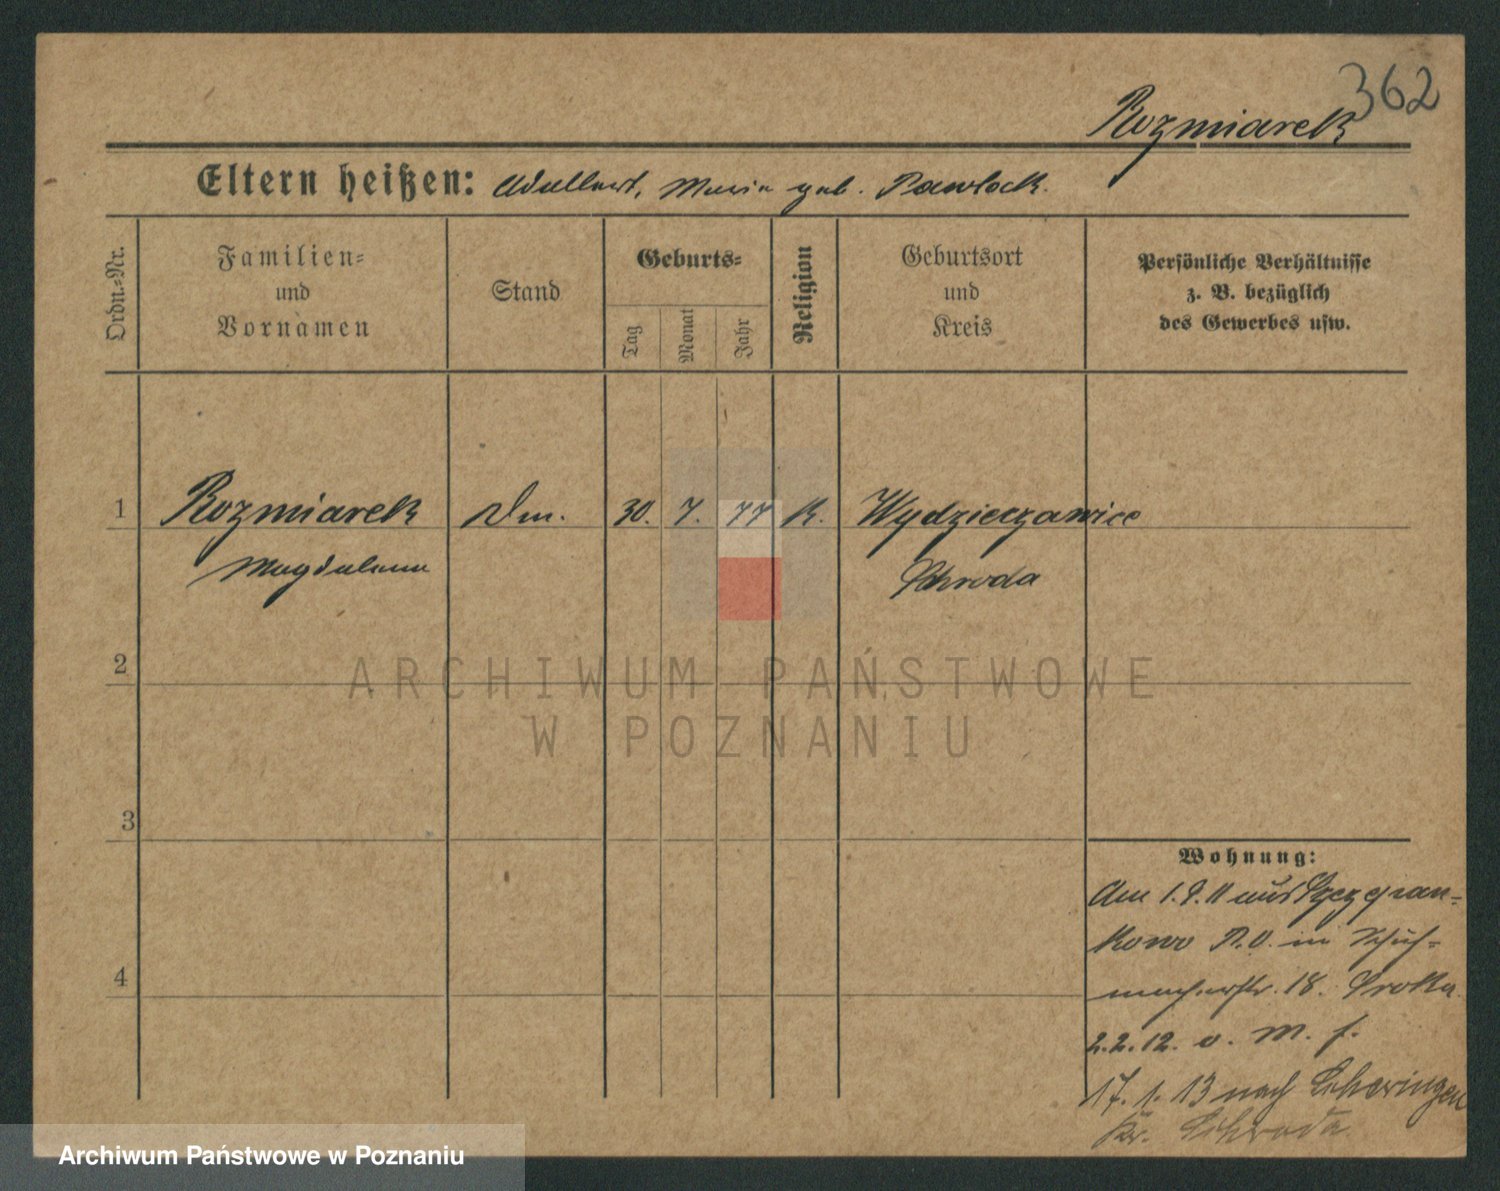 362
Rozmiarek
Eltern heißen: Adalbert, Maria geb. Pawlack.
Ordn.-Nr.
Familien-
und
Vornamen
Stand
Geburts-
Tag
Monat
Jahr
Religion
Geburtsort
und
Kreis
Persönliche Verhältnisse
z. B. bezüglich
des Gewerbes usw.
1 Rozmiarek 30. 7. 77 K. Wydzierzawice
Magdalena Schroda
2
ARCHIWUM PAŃSTWOWE
W POZNANIU
3
4
Wohnung:
Am 1.9.11 aus Szczepan-
kowo P.O. in Schuh-
macherstr. 18. Sroka
2.2.12. v. M. f.
17. 1. 13 nach
Kr. Schroda
Archiwum Państwowe w Poznaniu